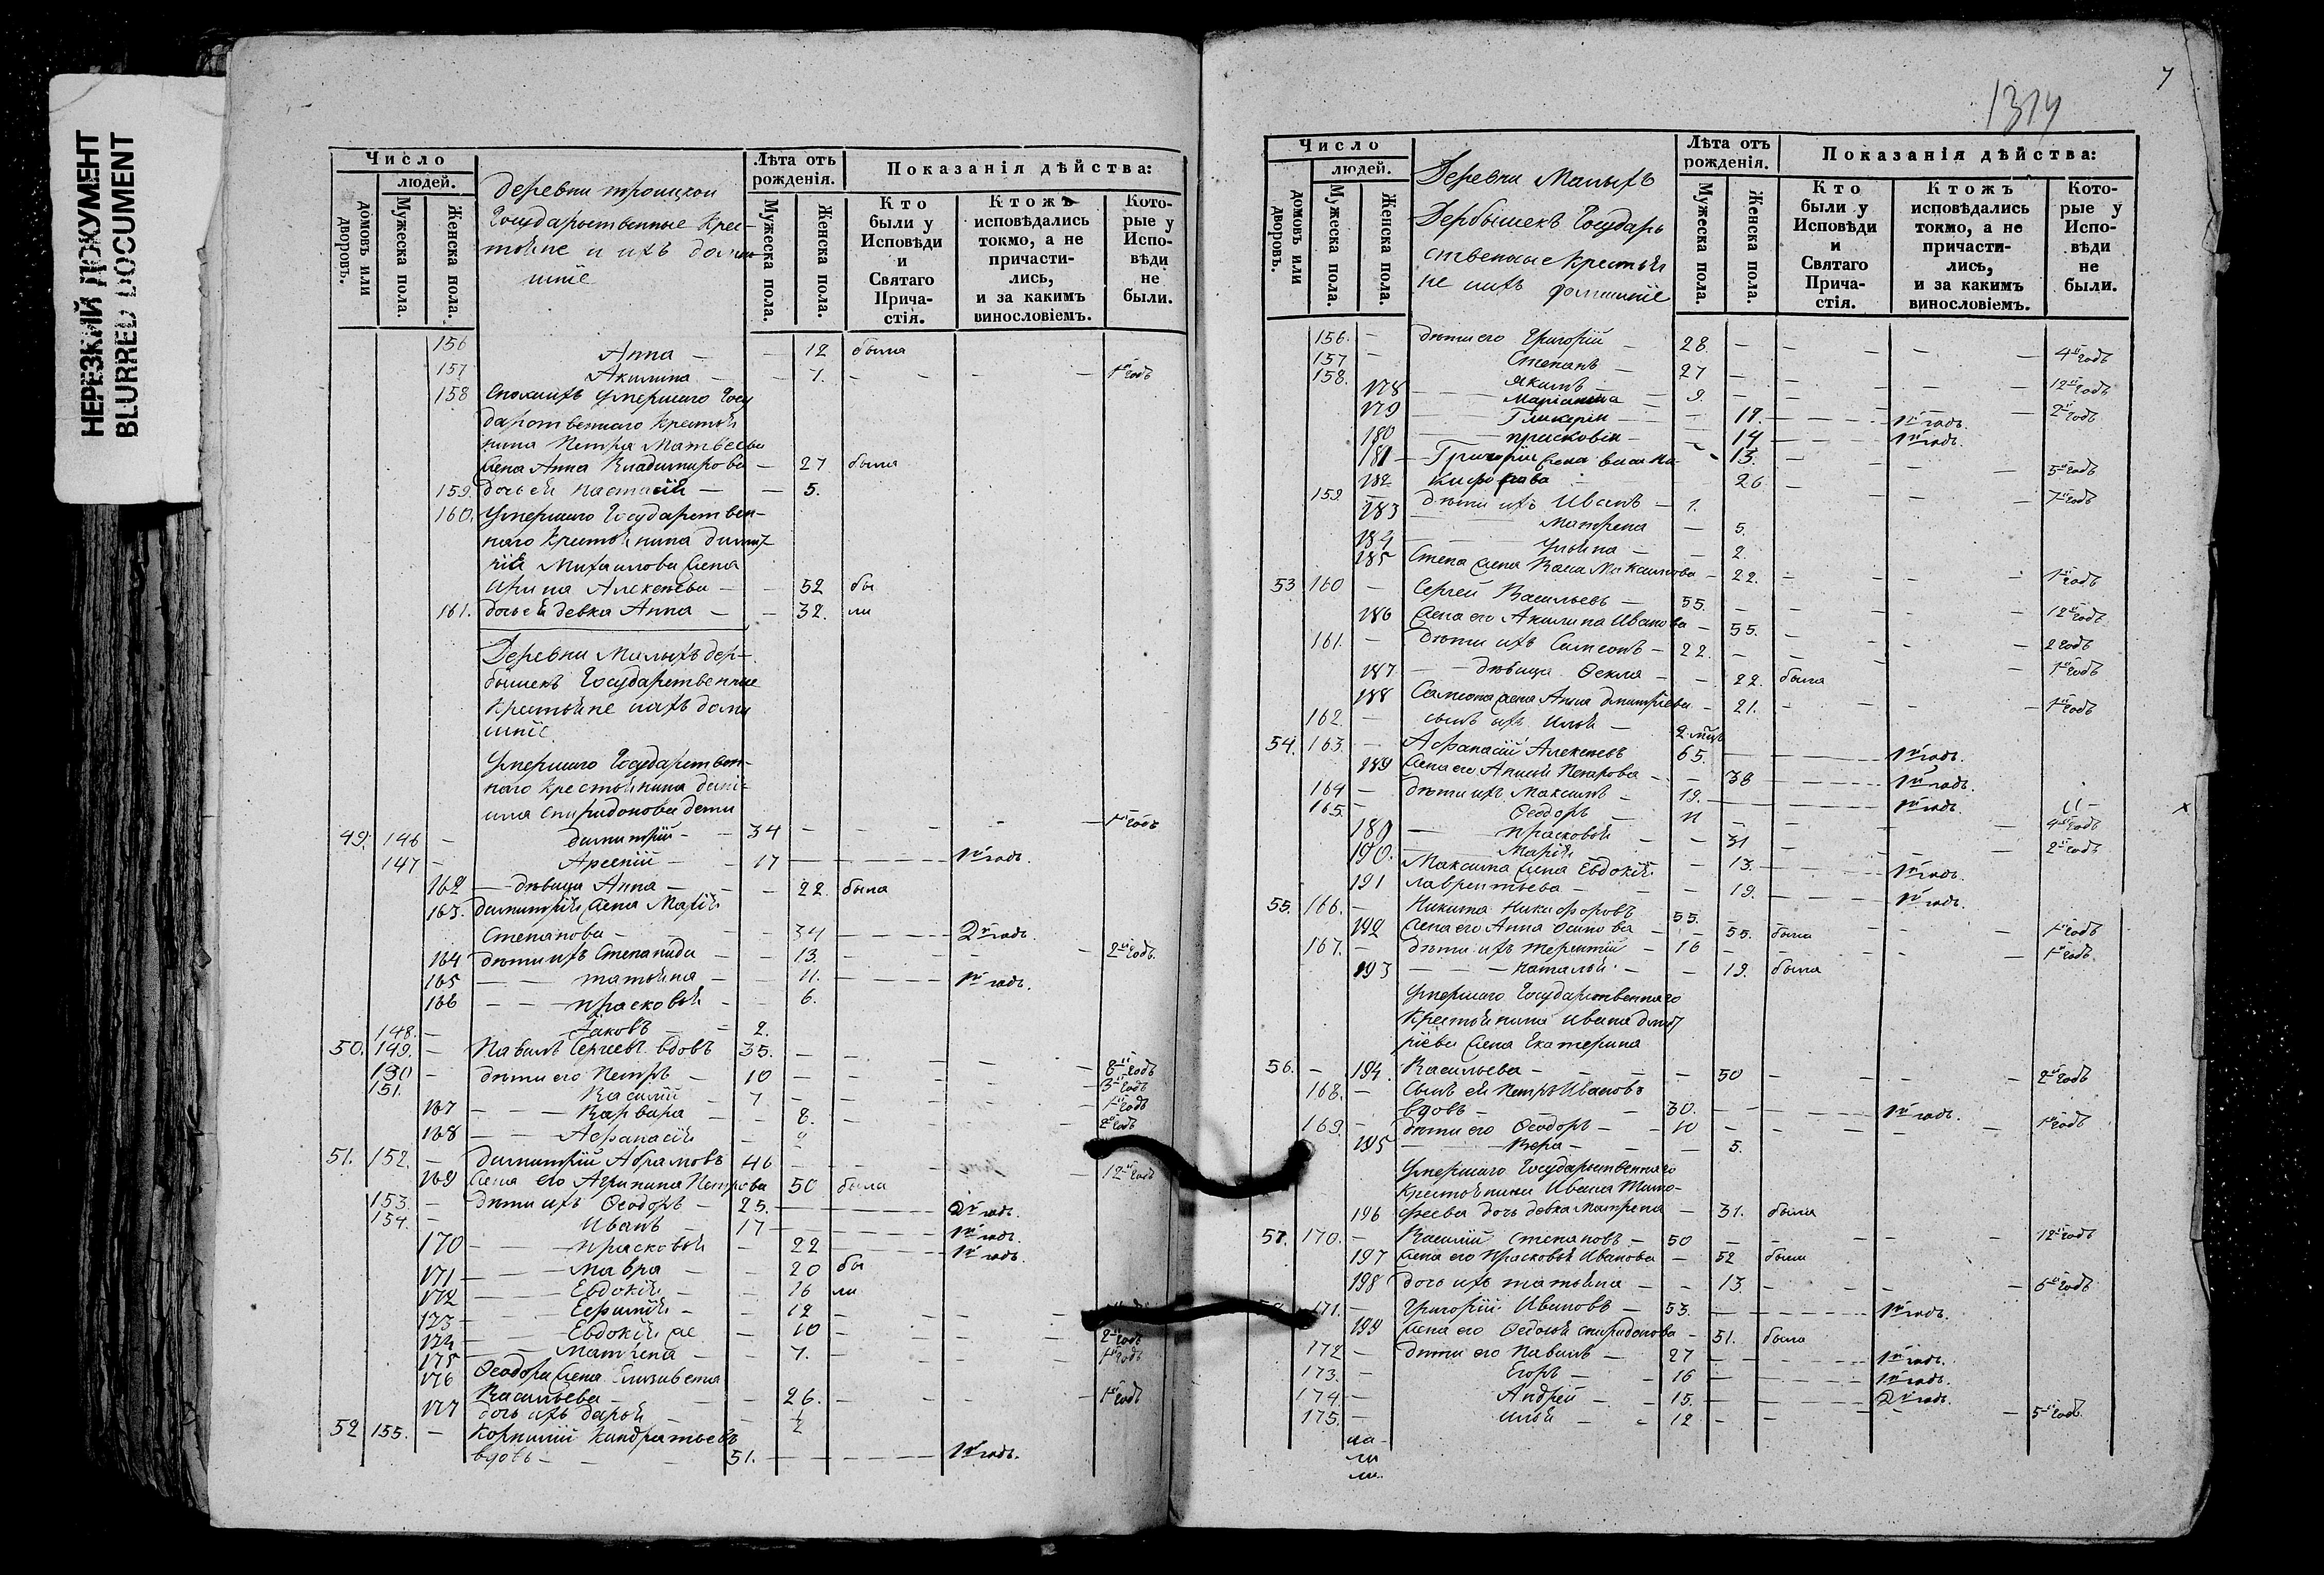 НЕРЕЗКИЙ ДОКУМЕНТ
BLURRED DOCUMENT
Число
людей.
домовъ или дворовъ.
Мужеска пола.
Женска пола.
деревни троицкои
Государственные Крес-
тьяне и ихъ домаш-
ніе
Лѣта отъ рожденія.
Мужеска пола.
Женска пола.
Показанія дѣйства:
Кто были у Исповѣди и Святаго Прича-стія.
Ктожъ исповѣдались токмо, а не причасти-лись, и за какимъ винословіемъ.
Кото-рые у Испо-вѣди не были.
156 Анна — — 12 была
157 Акилина — — 7. 1й годъ
158 Умершаго Госу
дарственнаго Крестья
нина Петра Матвѣева
жена Анна Владимирова — 27 была
159. дочь ея Настасія — — 5.
160. Умершаго Государствен-
наго Крестьянина Димит
рія Михаилова жена
Ирина Алексѣева — — 52 бы
161. дочь ея девка Анна — — 32. ли
Деревни Малыхъ дер-
бышекъ Государственные
Крестьяне ихъ домаш
ніе.
Умершаго Государствен-
наго Крестьянина
Спиридонова дети
49. 146 — Димитрій — 34 1й годъ
147 — Арсеній — 17 1й годъ.
162 — дѣвица Анна — — 22. была
163. Димитрія жена Марія
Степанова — — 34 2й годъ.
164 дѣти ихъ Степанида — — 13. 2й годъ.
165 — — татьяна — — 11. 1й годъ.
166 — — прасковья — — 6.
148. — Іаковъ — — 2.
50. 149. — Павелъ Сергеевъ вдовъ 35.
150 — дѣти его Петръ — 10 3й годъ
151. Василій — 7 1й годъ
167 — — Варвара — 8. 2й годъ
168 — — Афанасія
51. 152. — Димитрій Абрамовъ 46 12й годъ
169 жена его Агрипина Петрова 50 была
153. — дѣти ихъ Ѳеодоръ — 25. 2й годъ.
154. — Иванъ — 17 1й годъ.
170 — — прасковья — 22 1й годъ.
171 — — Мавра — — 20 бы
172 — — Евдокія — — 16 ли
173 — — Ефимія — — 12
174 — — Евдокія же — 10 2й годъ
175 — — Матрена — — 7. 1й годъ
176 Ѳеодора жена Елизавета
Васильева — — 26. 1й годъ
177 дочь ихъ дарья — —
52 155. — Корнилій Кондратьевъ
вдовъ — — 51. 1й годъ.
1314
7
Число
людей.
домовъ или дворовъ.
Мужеска пола.
Женска пола.
Деревни Малыхъ
Дербышекъ Государ
ственные Крестья
не ихъ домашніе
Лѣта отъ рожденія.
Мужеска пола.
Женска пола.
Показанія дѣйства:
Кто были у Исповѣди и Святаго Прича-стія.
Ктожъ исповѣдались токмо, а не причасти-лись, и за какимъ винословіемъ.
Кото-рые у Испо-вѣди не были.
156. — дѣти его Григорій — 28. 4й годъ
157 — Степанъ — 27 12й годъ
158. Якимъ — 9. 2й годъ
178 — — Маріанна — 17. 1й годъ.
179 — — Гликерія — 14 1й годъ.
180 — — прасковія — 13. 5й годъ
181 — Григорія жена
26 7й годъ
159. — дѣти ихъ Иванъ — 1.
183 Матрена — 5.
184 Ульяна — — 2.
185 Степа жена Васса Максимова — 22. 1й годъ
53 160 — Сергей Васильевъ — 55. 12й годъ
186 жена его Акилина Иванова — 55. 2 годъ
161. — дѣти ихъ Самсонъ — 22. 1й годъ
187 — — дѣвица Ѳекла — — 22. была
188 Самсона жена Анна Дмитріева — 21. 1й годъ
162. — сынъ ихъ Илья — 2 мѣс
54. 163. — Афанасій Алексѣевъ 65. 1й годъ.
189 жена его Петрова — — 38 1й годъ.
164 — дѣти ихъ Максимъ — 19. 1й годъ.
165. — Ѳеодоръ — 11 4й годъ
189 — — прасковья — — 31 2й годъ
190. — Марія — 13. 1й годъ.
Максима жена Евдокія
191 Лаврентьева — — 19. 1й годъ.
55. 166. — Никита Никифоровъ 55. 1й годъ
192 жена его Анна Осипова — — 55. была
167. — дѣти ихъ терентій — 16 1й годъ.
193 — — наталья — — 19. была
Умершаго Государственнаго
Крестьянина Ивана Димит
ріева жена Екатерина
56. — 194. Васильева — — 50 2й годъ
168. — Сынъ ея Петръ Ивановъ
вдовъ — 30. 1й годъ.
169. — дѣти его Ѳеодоръ — 10 1й годъ
195 — — Вера — — 5.
Умершаго Государственнаго
Крестьянина Ивана Тимо-
феева дочь девка Матрена
196 — 31. была
57. 170. — Василій Степановъ — 50 12й годъ
197 жена его Прасковья Иванова — 52 была
198 дочь ихъ татьяна — — 13. 6й годъ
171. — Григорій Ивановъ — 53. 1й годъ.
199 жена его Ѳедосья Спиридонова — 51. была
172 — дѣти его Павелъ — 27 1й годъ.
173. — Егоръ — 16 1й годъ.
174. — Андрей — 15. 2й годъ.
175. — Илья — 12 5й годъ.